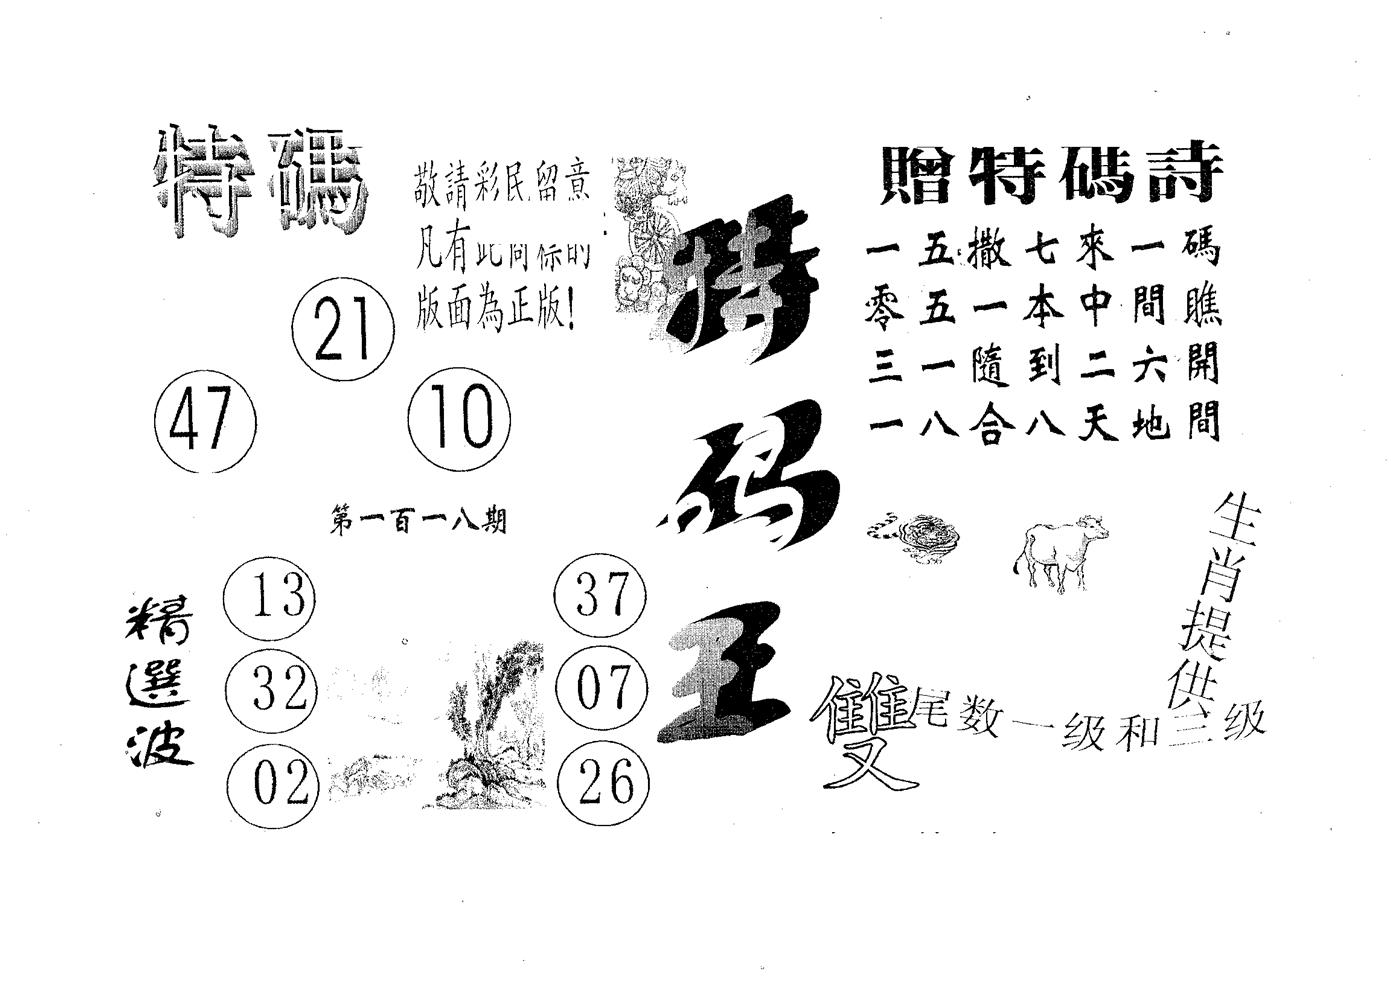 特碼
敬請彩民留意:
凡有此商标的
版面為正版!
21
47
10
第一百一八期
精選波
13
32
02
37
07
26
特码王
贈特碼詩
一五撒七來一碼
零五一本中間瞧
三一隨到二六開
一八合八天地間
生肖提供
雙尾数一级和三级